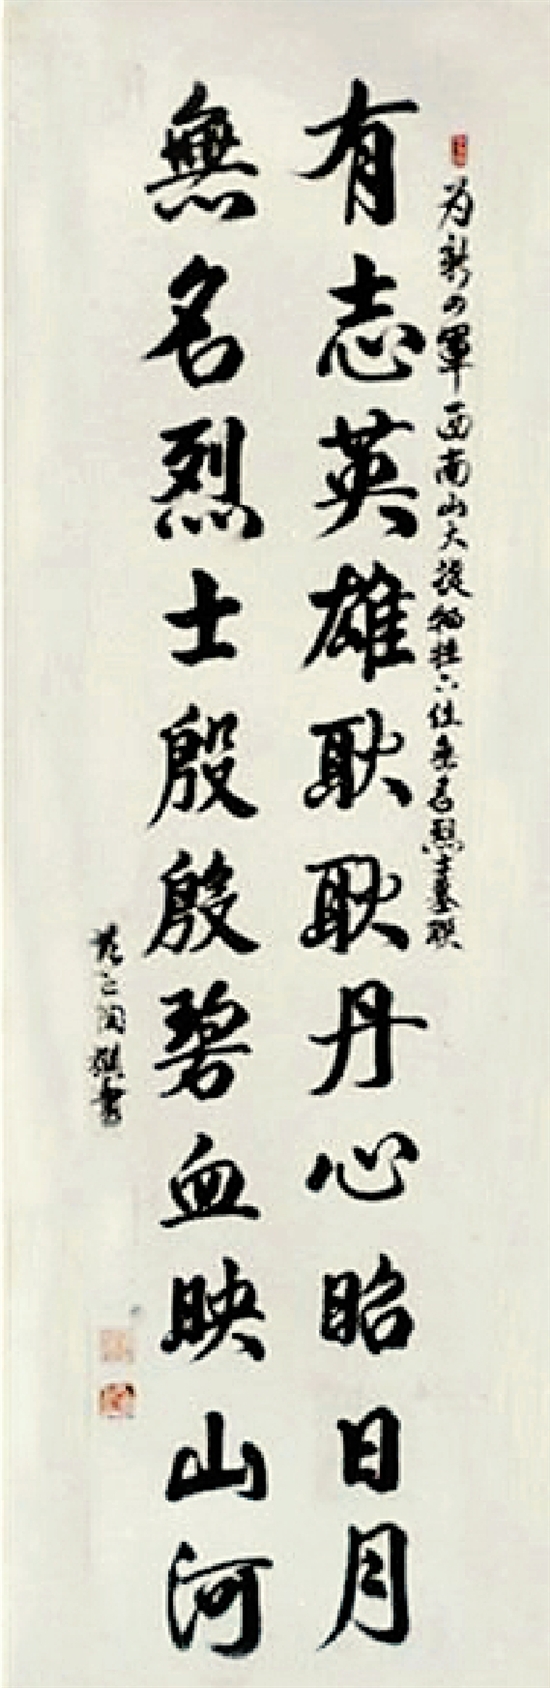 为新四军西南山大捷牺牲六位无名烈士墓联
有志英雄耿耿丹心昭日月
無名烈士殷殷碧血映山河
撰書